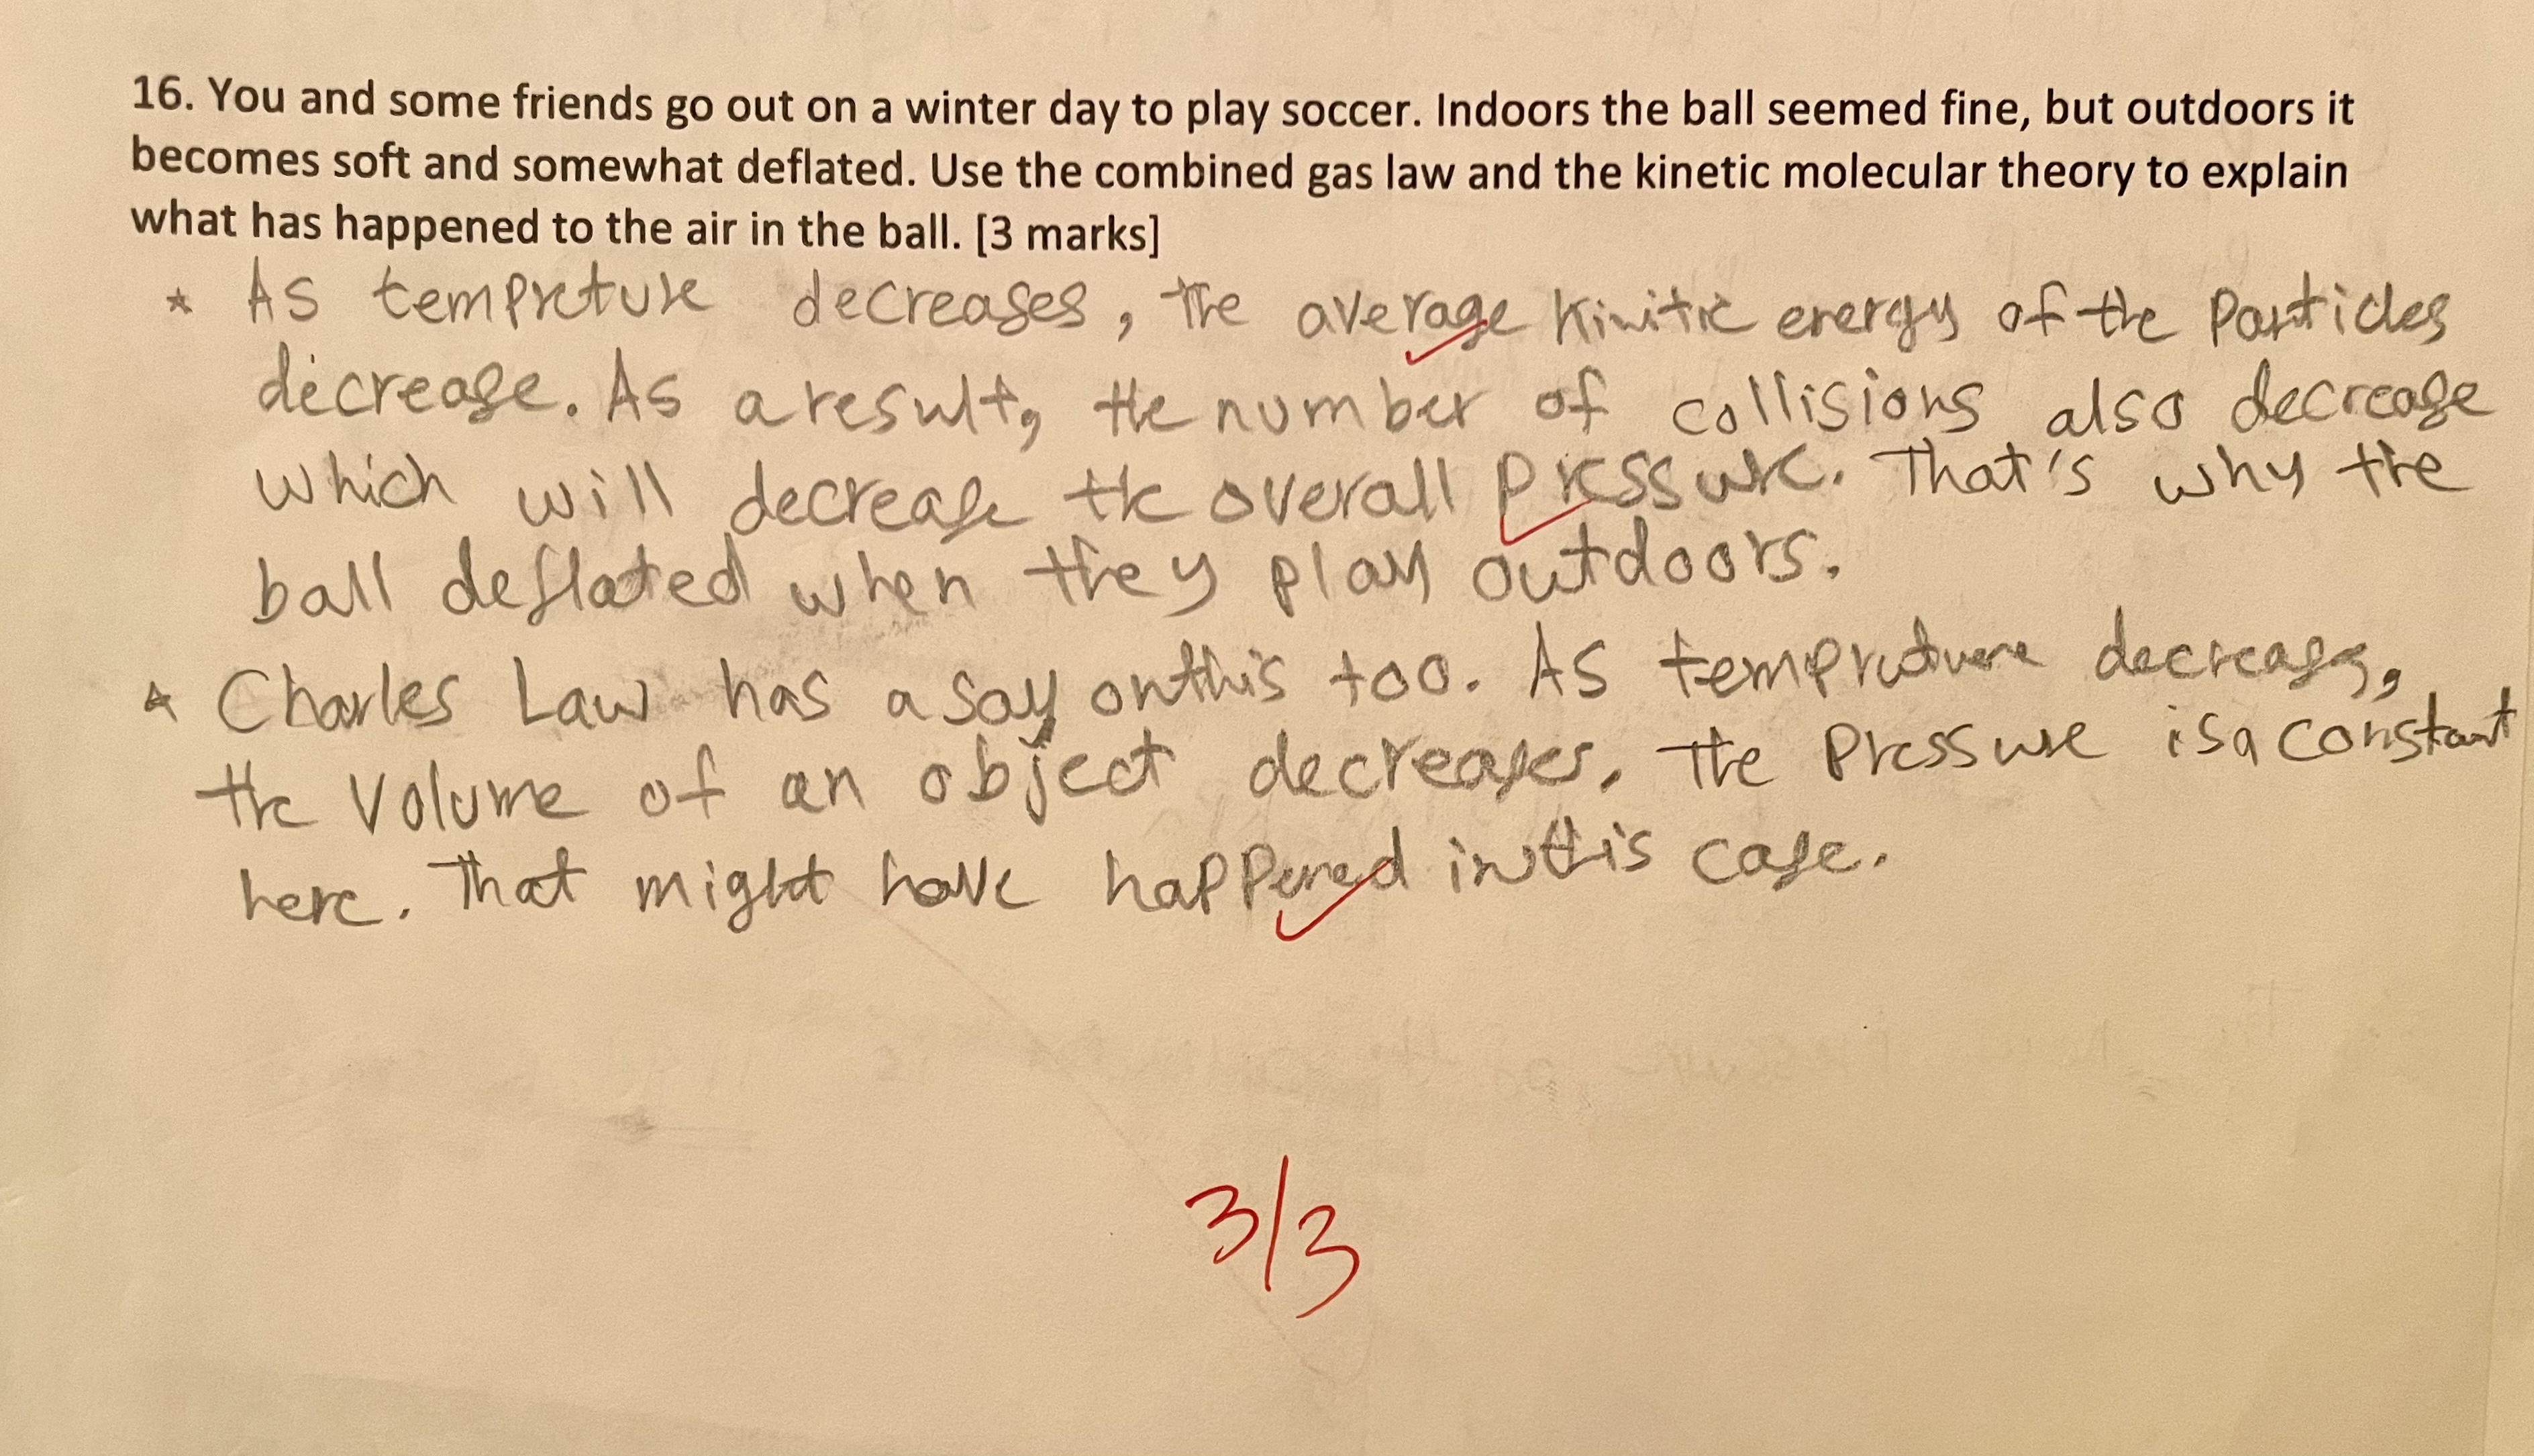 16. You and some friends go out on a winter day to play soccer. Indoors the ball seemed fine, but outdoors it
becomes soft and somewhat deflated. Use the combined gas law and the kinetic molecular theory to explain
what has happened to the air in the ball. [3 marks]
* As tempreture decreases, the average kinitic energy of the particles
decrease. As a result, the number of collisions also decrease
which will decrease the overall pressure. That's why the
ball deflated when they play outdoors.
* Charles Law has a say on this too. As tempruture decreases,
the volume of an object decreases. The pressure is a constant
here. That might have happened in this case.
3/3